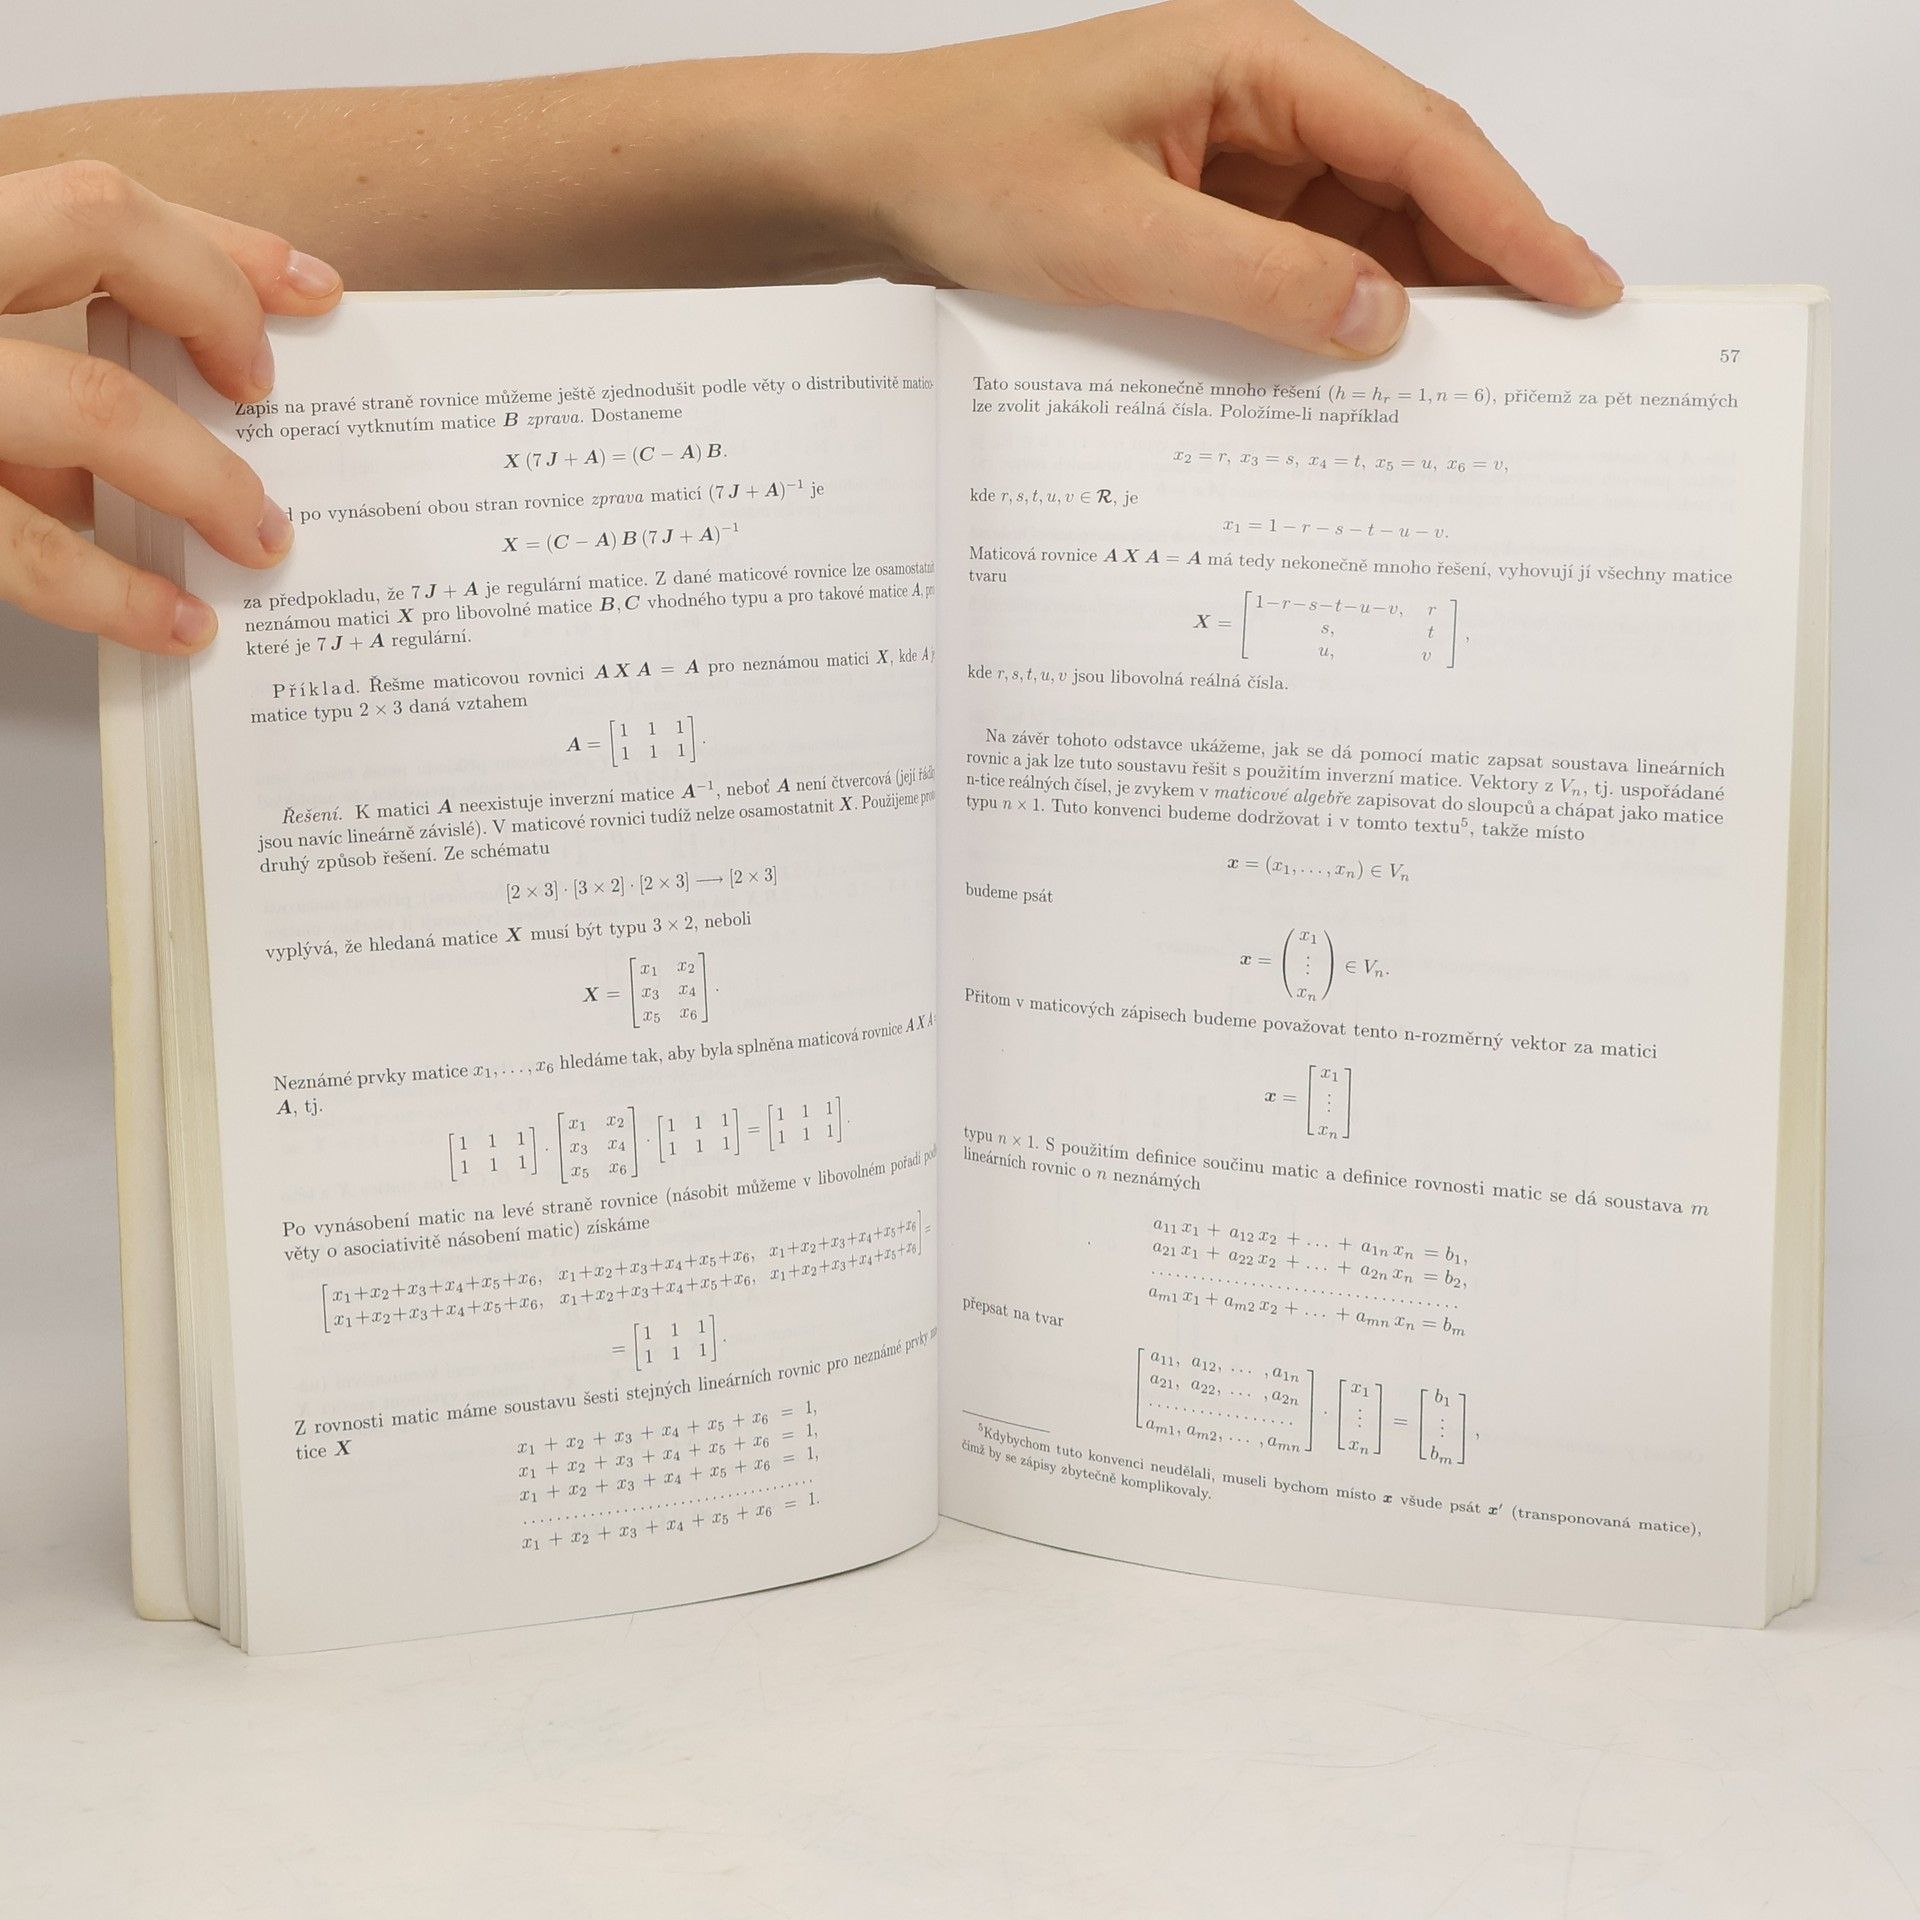 Zápis na pravé straně rovnice můžeme ještě zjednodušit podle věty o distributivitě matico-
vých operací vytknutím matice B zprava. Dostaneme
X (7 J + A) = (C − A) B.
po vynásobení obou stran rovnice zprava maticí (7 J + A)⁻¹ je
X = (C − A) B (7 J + A)⁻¹
za předpokladu, že 7 J + A je regulární matice. Z dané maticové rovnice lze osamostatnit
neznámou matici X pro libovolné matice B, C vhodného typu a pro takové matice A,
které je 7 J + A regulární.
Příklad. Řešme maticovou rovnici A X A = A pro neznámou matici X, kde A
matice typu 2 × 3 daná vztahem
A = [1 1 1]
[1 1 1].
Řešení. K matici A neexistuje inverzní matice A⁻¹, neboť A není čtvercová (její
jsou navíc lineárně závislé). V maticové rovnici tudíž nelze osamostatnit X. Použijeme
druhý způsob řešení. Ze schématu
[2 × 3] · [3 × 2] · [2 × 3] ⟶ [2 × 3]
vyplývá, že hledaná matice X musí být typu 3 × 2, neboli
X = [x₁ x₂]
[x₃ x₄]
[x₅ x₆].
Neznámé prvky matice x₁, . . . , x₆ hledáme tak, aby byla splněna maticová rovnice A X A =
A, tj.
[1 1 1] · [x₁ x₂] · [1 1 1] = [1 1 1]
[1 1 1] [x₃ x₄] [1 1 1] [1 1 1].
[x₅ x₆]
Po vynásobení matic na levé straně rovnice (násobit můžeme v libovolném pořadí
věty o asociativitě násobení matic) získáme
[x₁+x₂+x₃+x₄+x₅+x₆, x₁+x₂+x₃+x₄+x₅+x₆, x₁+x₂+x₃+x₄+x₅+x₆] =
[x₁+x₂+x₃+x₄+x₅+x₆, x₁+x₂+x₃+x₄+x₅+x₆, x₁+x₂+x₃+x₄+x₅+x₆]
= [1 1 1]
[1 1 1].
Z rovnosti matic máme soustavu šesti stejných lineárních rovnic pro neznámé prvky ma-
tice X
x₁ + x₂ + x₃ + x₄ + x₅ + x₆ = 1,
x₁ + x₂ + x₃ + x₄ + x₅ + x₆ = 1,
x₁ + x₂ + x₃ + x₄ + x₅ + x₆ = 1,
........................................
x₁ + x₂ + x₃ + x₄ + x₅ + x₆ = 1.
57
Tato soustava má nekonečně mnoho řešení (h = hᵣ = 1, n = 6), přičemž za pět neznámých
lze zvolit jakákoli reálná čísla. Položíme-li například
x₂ = r, x₃ = s, x₄ = t, x₅ = u, x₆ = v,
kde r, s, t, u, v ∈ R, je
x₁ = 1 − r − s − t − u − v.
Maticová rovnice A X A = A má tedy nekonečně mnoho řešení, vyhovují jí všechny matice
tvaru
X = [1−r−s−t−u−v, r]
[s, t]
[u, v],
kde r, s, t, u, v jsou libovolná reálná čísla.
Na závěr tohoto odstavce ukážeme, jak se dá pomocí matic zapsat soustava lineárních
rovnic a jak lze tuto soustavu řešit s použitím inverzní matice. Vektory z Vₙ, tj. uspořádané
n-tice reálných čísel, je zvykem v maticové algebře zapisovat do sloupců a chápat jako matice
typu n × 1. Tuto konvenci budeme dodržovat i v tomto textu⁵, takže místo
x = (x₁, . . . , xₙ) ∈ Vₙ
budeme psát
x = (x₁
⋮
xₙ) ∈ Vₙ.
Přitom v maticových zápisech budeme považovat tento n-rozměrný vektor za matici
x = [x₁
⋮
xₙ]
typu n × 1. S použitím definice součinu matic a definice rovnosti matic se dá soustava m
lineárních rovnic o n neznámých
a₁₁ x₁ + a₁₂ x₂ + . . . + a₁ₙ xₙ = b₁,
a₂₁ x₁ + a₂₂ x₂ + . . . + a₂ₙ xₙ = b₂,
........................................
aₘ₁ x₁ + aₘ₂ x₂ + . . . + aₘₙ xₙ = bₘ
přepsat na tvar
[a₁₁, a₁₂, . . . , a₁ₙ] · [x₁] = [b₁]
[a₂₁, a₂₂, . . . , a₂ₙ] [⋮] [⋮]
..................
[aₘ₁, aₘ₂, . . . , aₘₙ] [xₙ] [bₘ],
⁵Kdybychom tuto konvenci neudělali, museli bychom místo x všude psát x′ (transponovaná matice),
čímž by se zápisy zbytečně komplikovaly.